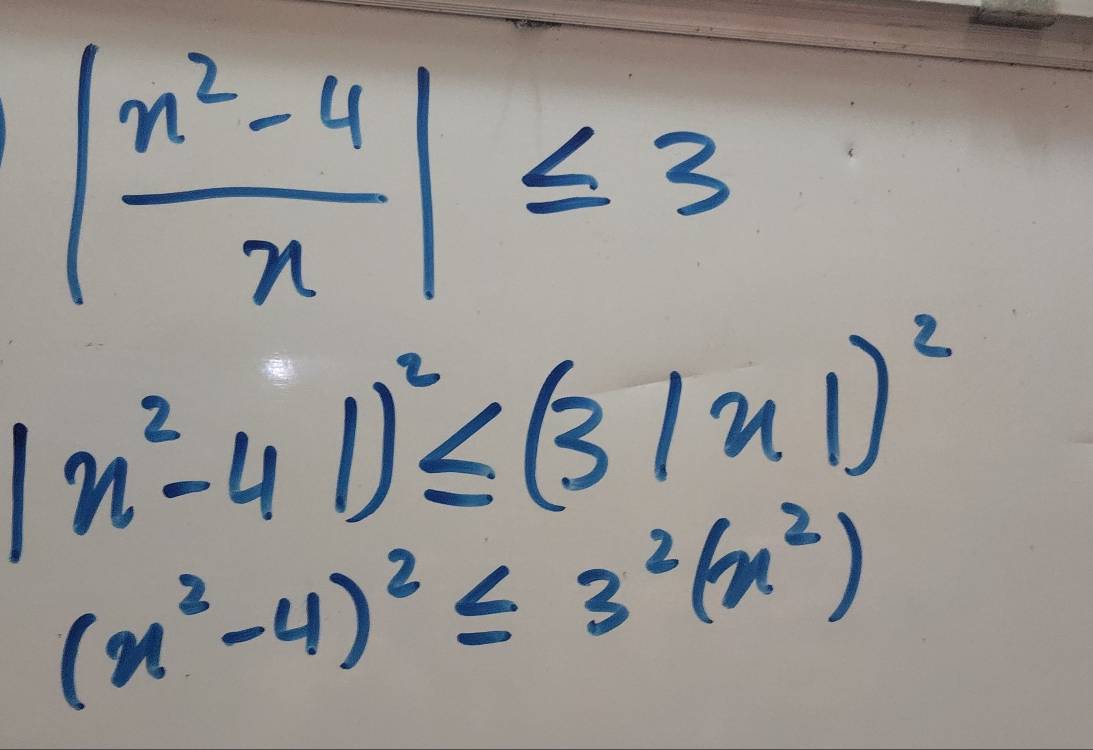 ) |x² - 4 / x| ≤ 3
|x² - 4|)² ≤ (3|x|)²
(x² - 4)² ≤ 3²(x²)